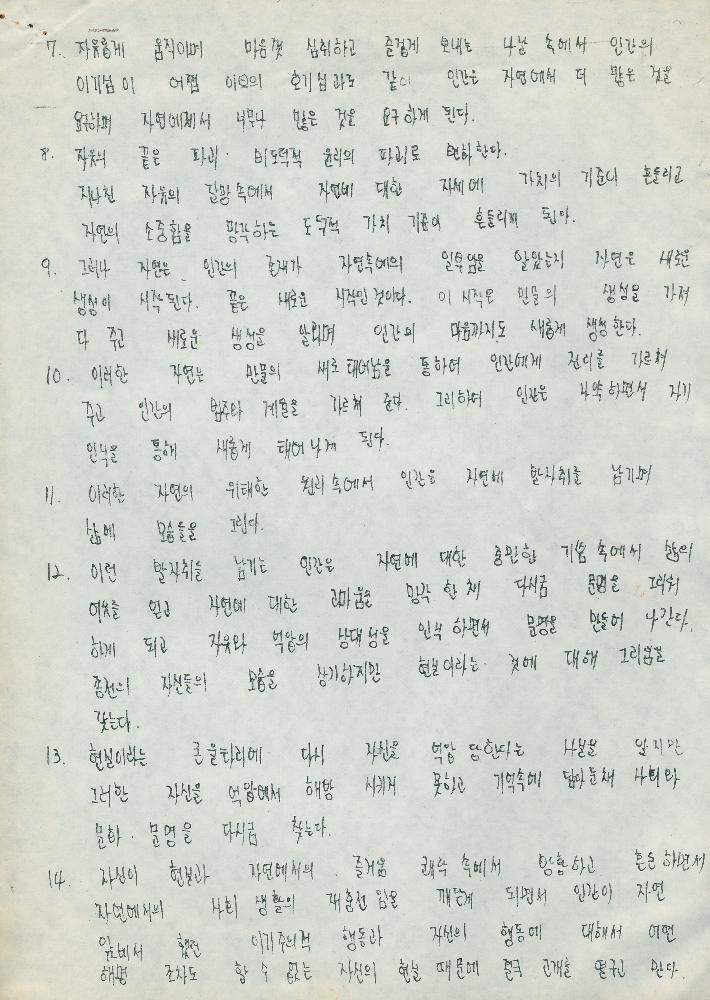 7. 자유롭게 움직이며 마음껏 심취하고 즐겁게 보내는 나날 속에서 인간의
이기심이 어쩜 이의 호기심과도 같이 인간은 자연에게서 더 많은 것을
요구하며 자연에게서 너무나 많은 것을 요구하게 된다.
8. 자유의 끝은 파괴. 비도덕적 윤리의 파괴로 변화한다.
지나친 자유의 갈망속에서 자연에 대한 자세에 가치의 기준이 흔들리고
자연의 소중함을 망각하는 도덕적 가치 기준이 흔들리게 된다.
9. 그러나 자연은 인간의 존재가 자연속에의 일부임을 알았는지 자연은 새로운
생성이 시작된다. 끝은 새로운 시작인것이다. 이 시작은 만물의 생성을 가져
다 주고 새로운 생성을 알리며 인간의 마음까지도 새롭게 생성한다.
10. 이러한 자연는 만물의 새로 태어남을 통하여 인간에게 진리를 가르쳐
주고 인간의 범주와 계율을 가르쳐 준다. 그리하여 인간은 나약하면서 자기
인식을 통해 새롭게 태어나게 된다.
11. 이러한 자연의 위대한 원리속에서 인간은 자연에 발자취를 남기며
삶에 모습들을 그린다.
12. 이런 발자취를 남기는 인간은 자연에 대한 충만함 기쁨 속에서 삶의
여유를 얻고 자연에 대한 고마움을 망각 한채 다시금 문명을 그리워
하게 되고 자유와 억압의 상대성을 인식하면서 문명을 만들어 나간다.
종전의 자신들의 모습을 상기하지만 현실이라는 것에 대해 그리움을
찾는다.
13. 현실이라는 큰울타리에 다시 자신을 억압 당한다는 사실을 알지만
그러한 자신을 억압에서 해방 시키지 못하고 기억속에 담아둔채 사회와
문화. 문명을 다시금 찾는다.
14. 자신이 현실과 자연에서의 즐거움 쾌락 속에서 방황하고 혼돈하면서
자연에서의 사회 생활의 재충전 임을 깨닫게 되면서 인간이 자연
앞에서 했던 이기주의적 행동과 자신의 행동에 대해서 어떤
해명 조차도 할 수 없는 자신의 현실 때문에 결국 고개를 떨구고 만다.